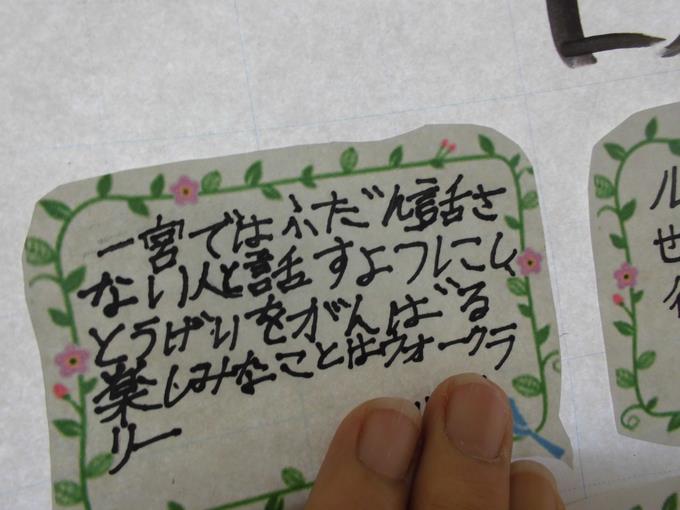 一宮ではふだん話さ
ない人と話すようにし、
とうげいをがんばる
楽しみなことはウォークラ
リー
ル
也